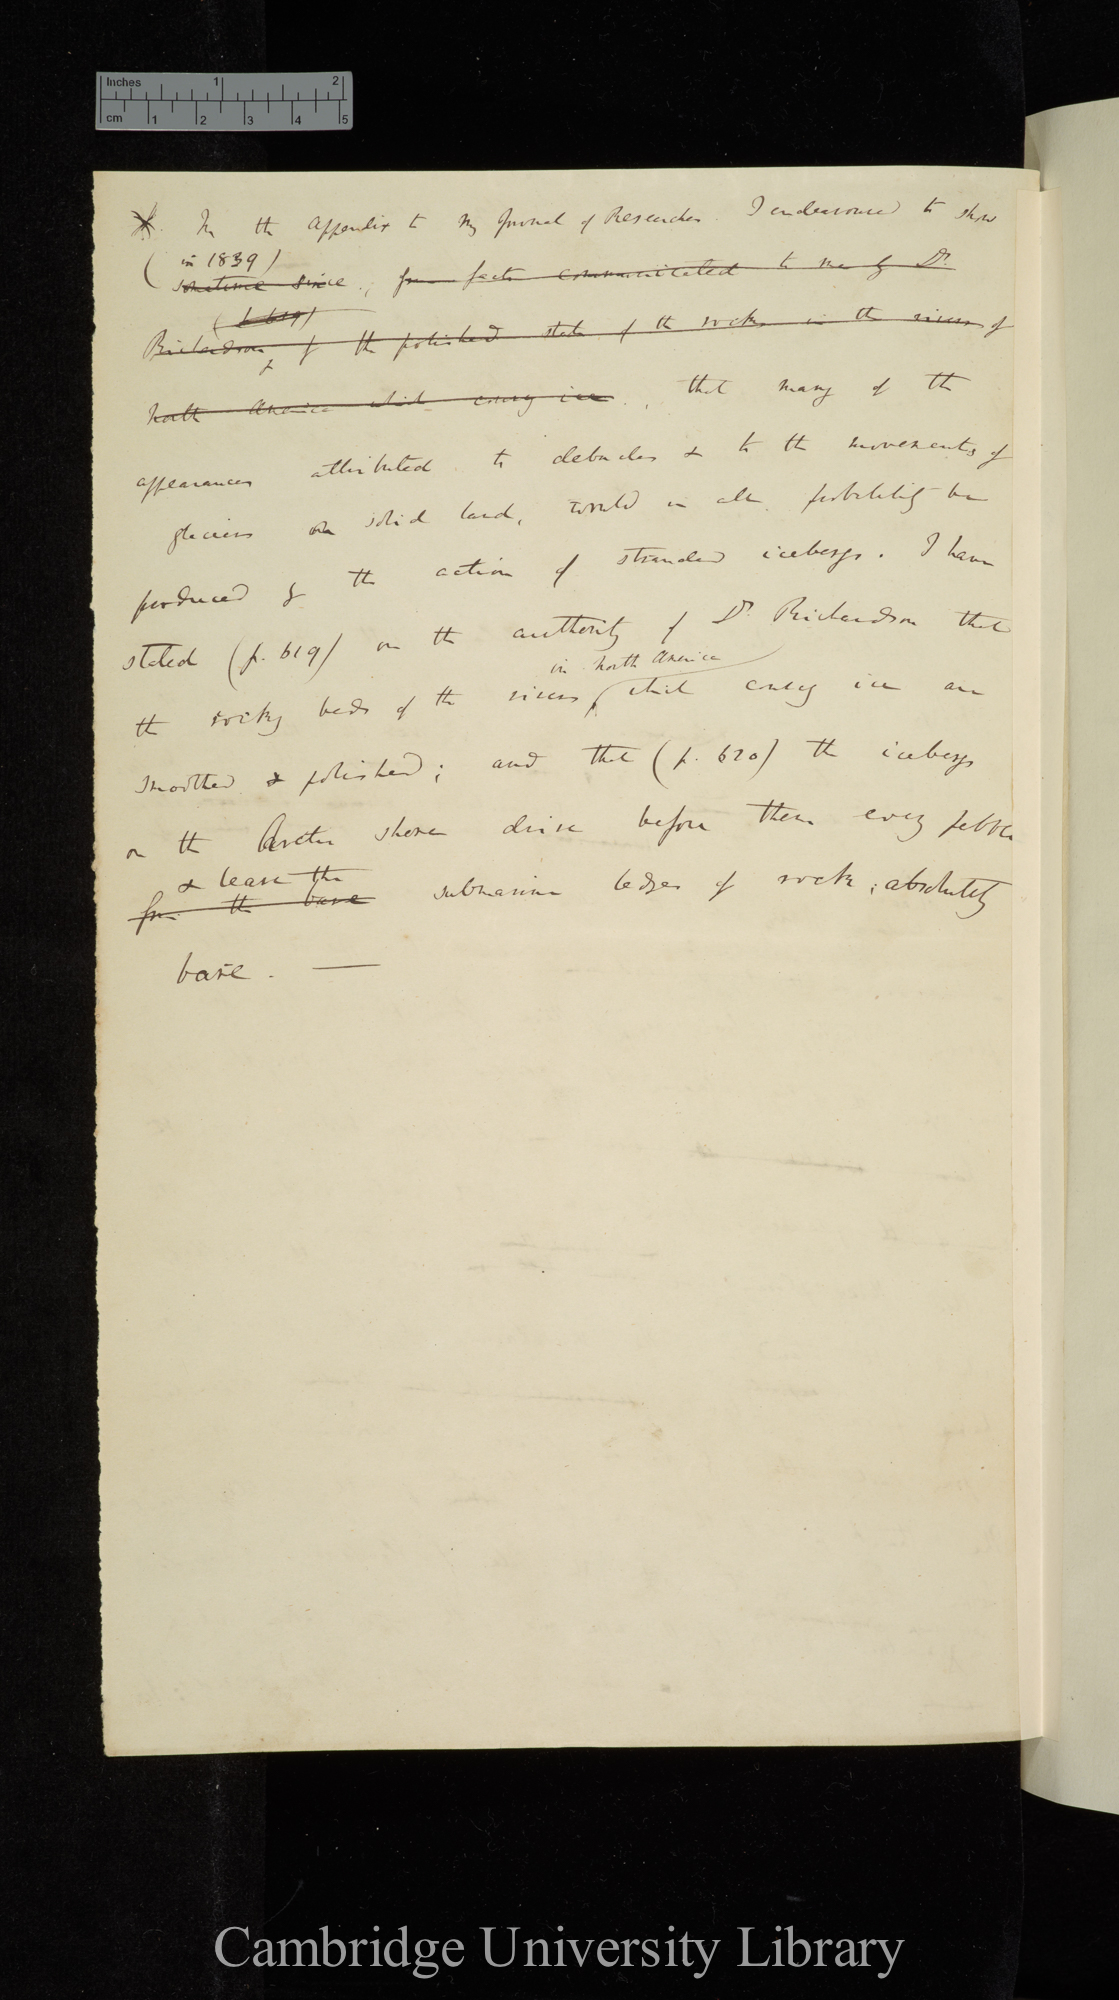 Inches 1 2
cm 1 2 3 4 5
* In the Appendix to my Journal of Researches I endeavoured to show
(in 1839)
sometime since, from facts communicated to me by Dr.
(p 619)
Richardson, of the polished state of the rocks in the rivers of
North America which convey ice, that many of the
appearances attributed to debacles & to the movements of
glaciers on solid land, would in all probability be
produced by the action of stranded icebergs. I have
stated (p. 619) on the authority of Dr. Richardson that
in North America
the rocky beds of the rivers which convey ice are
smoothed & polished; and that (p. 620) the icebergs
on the Arctic shores drive before them every pebble
& leave the
from the bare submarine ledges of rock, absolutely
bare. —
Cambridge University Library